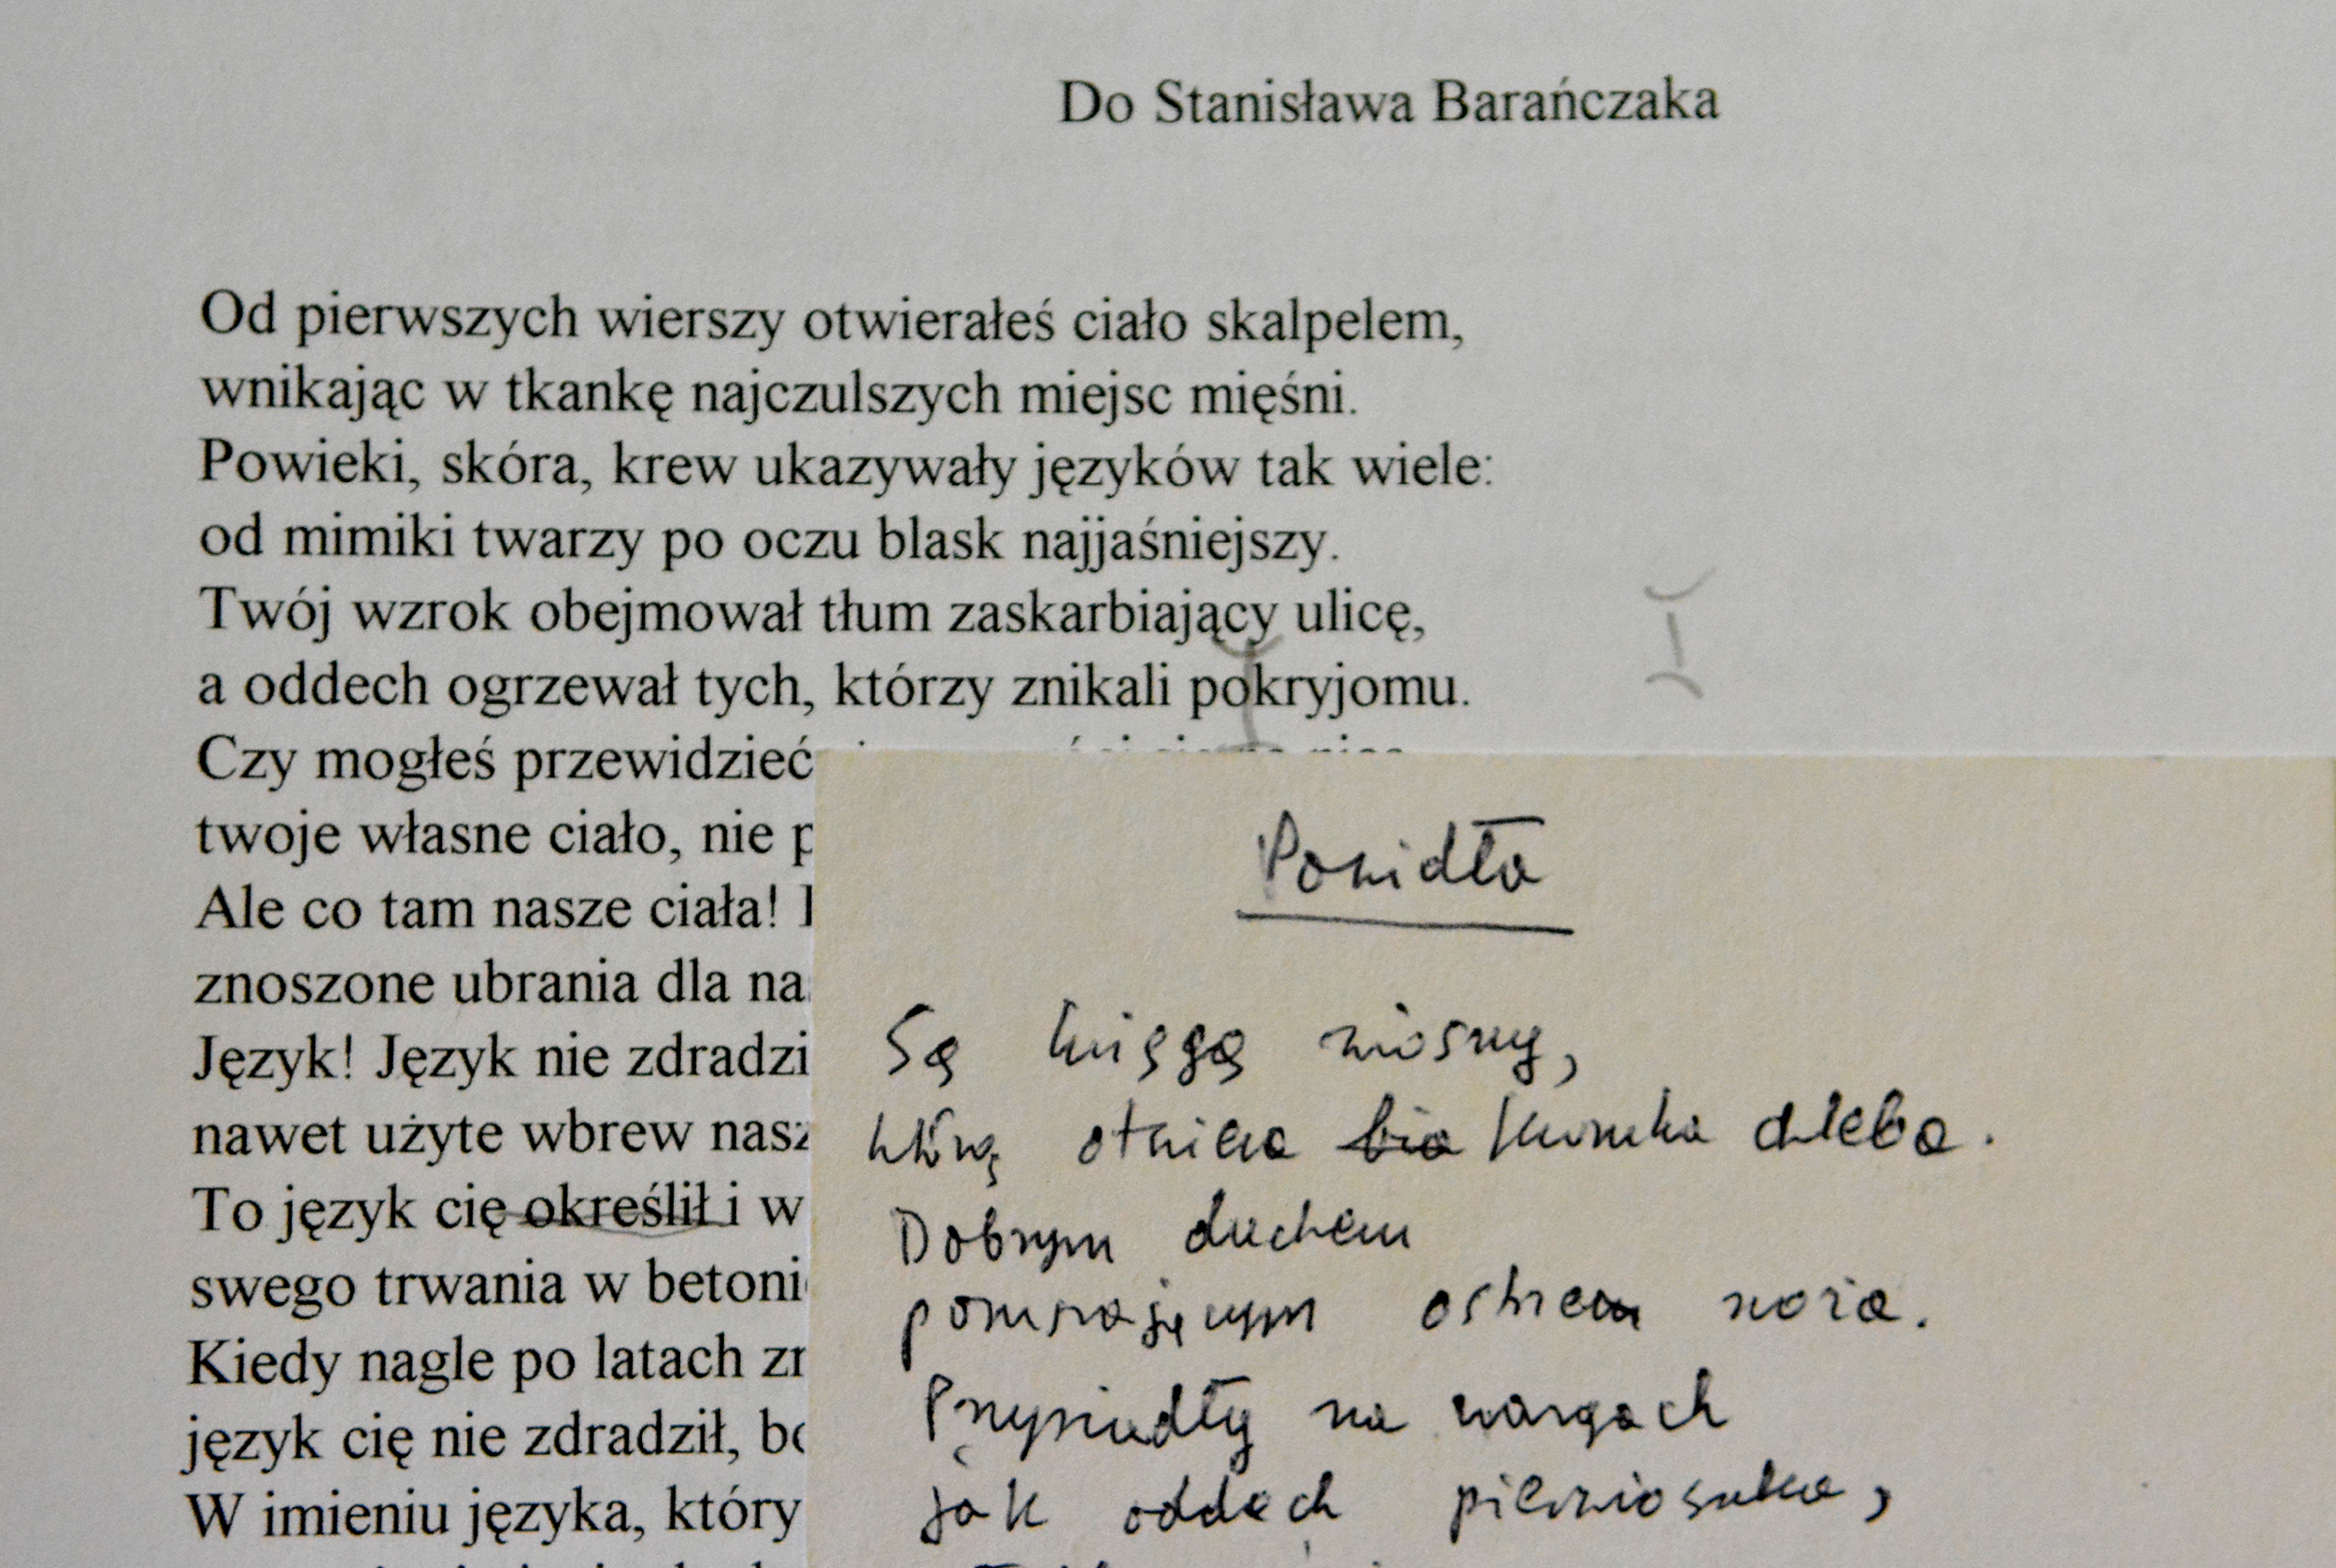 Do Stanisława Barańczaka
Od pierwszych wierszy otwierałeś ciało skalpelem,
wnikając w tkankę najczulszych miejsc mięśni.
Powieki, skóra, krew ukazywały języków tak wiele:
od mimiki twarzy po oczu blask najjaśniejszy.
Twój wzrok obejmował tłum zaskarbiający ulicę,
a oddech ogrzewał tych, którzy znikali pokryjomu.
Czy mogłeś przewidzieć
twoje własne ciało, nie p
Ale co tam nasze ciała!
znoszone ubrania dla na
Język! Język nie zdradzi
nawet użyte wbrew nasz
To język cię określił i w
swego trwania w betoni
Kiedy nagle po latach zn
język cię nie zdradził, bo
W imieniu języka, który
Powidła
Są księgą wiosny,
którą otwiera kromka chleba.
Dobrym duchem
poruszającym ostrze noża.
Przywiędły na wargach
jak oddech pierwiosnka,